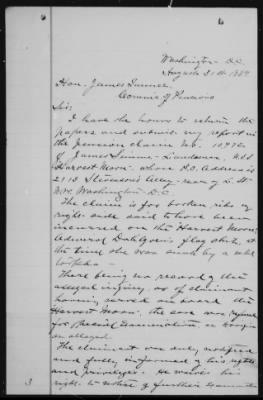 Washington D.C.
August 31st 1889
Hon. James Tanner
Comm'r of Pensions
Sir:
I have the honor to return the
papers and submit my report in
the Pension claim No. 10,972
of James Landsman, U.S.S.
Harvest Moon, whose P.O. Address is
2118 Stevenson's Alley rear of L. St
N.W. Washington D.C.
The claim is for broken ribs of
right side said to have been
incurred on the Harvest Moon,
Admiral Dahlgren's flag ship, at
the time she was sunk by a rebel
torpedo.
There being no record of the
alleged injury, or of claimant
having served on board the
Harvest Moon, the case was referred
for special examination
as alleged.
The claimant was duly notified
and fully informed of his rights
and privileges. He waived his
right to notice of further examin
3